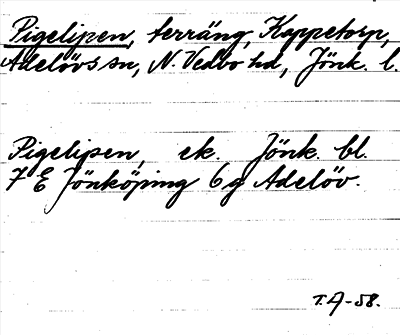 Pigelipen, terräng, Kappetorp,
Adelövs sn, N. Vedbo hd, Jönk. l.
Pigelipen, ek. Jönk. bl.
7 E Jönköping 6 g Adelöv.
T.A-58.